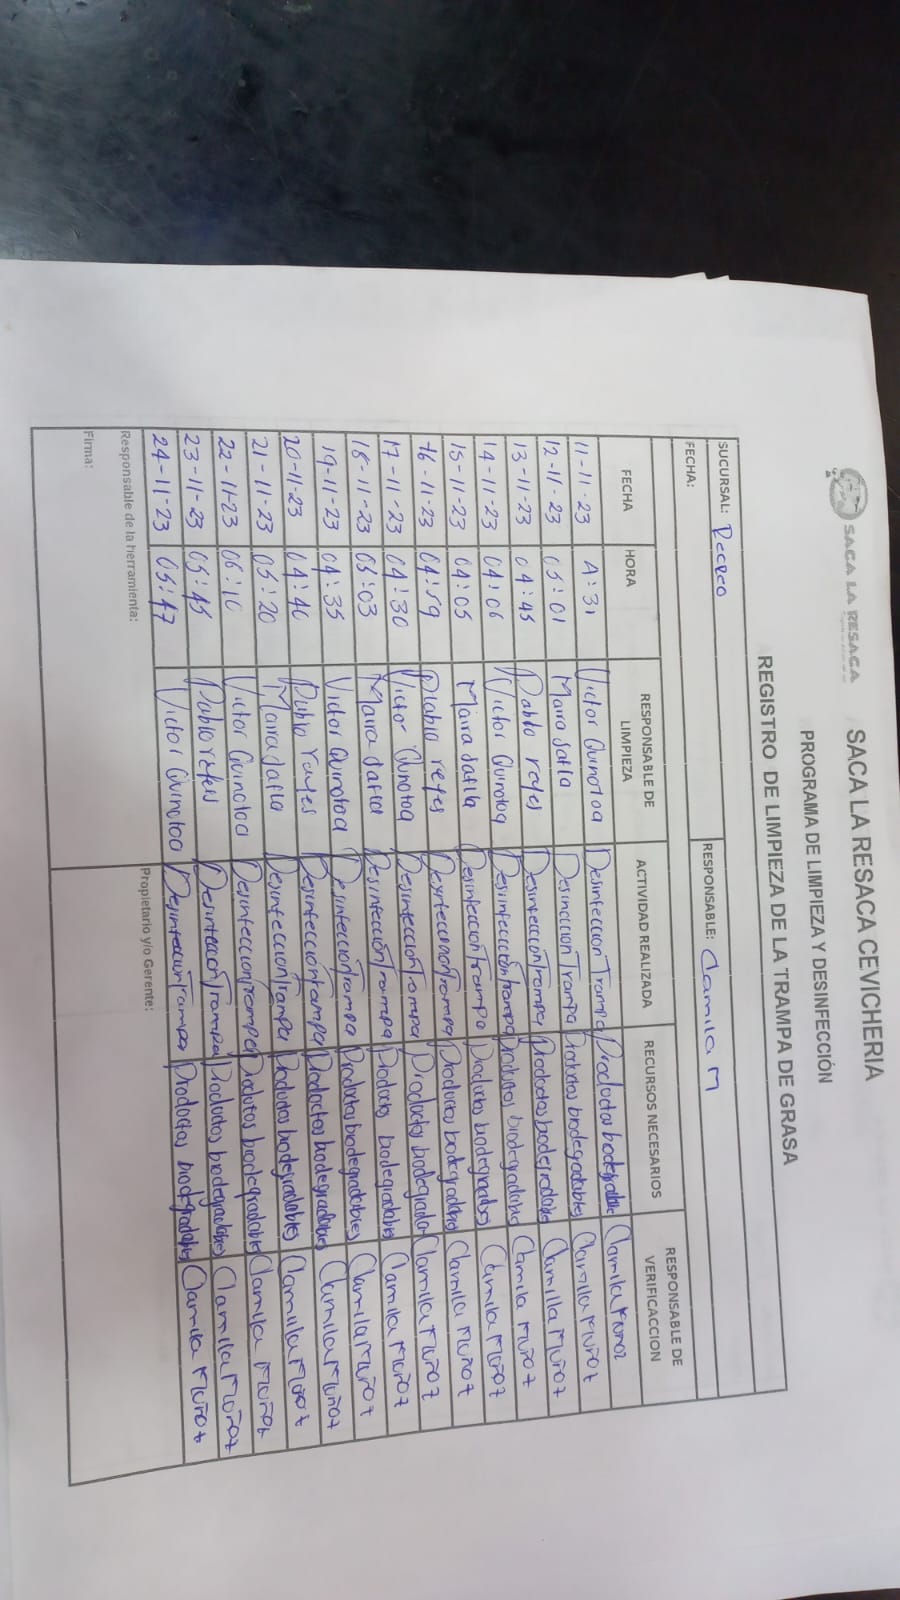 SACA LA RESACA SACA LA RESACA CEVICHERIA
PROGRAMA DE LIMPIEZA Y DESINFECCIÓN
REGISTRO DE LIMPIEZA DE LA TRAMPA DE GRASA
SUCURSAL: Recreo RESPONSABLE: Camila M
FECHA:
FECHA HORA RESPONSABLE DE LIMPIEZA ACTIVIDAD REALIZADA RECURSOS NECESARIOS RESPONSABLE DE VERIFICACCION
11-11-23 A:31 Victor Quinotoa Desinfeccion Trampa Productos biodegradable Camila Muñoz
12-11-23 05:01 Maira Safla Desinccion Trampa Productos biodegradables Camila Muñoz
13-11-23 04:45 Pablo reyes Desinfeccion Trampa Productos biodegradable Camilla Muñoz
14-11-23 04:06 Victor Quinotoa Desinfección Trampa Productos biodegradables Camila Muñoz
15-11-23 04:05 Maira Safla Desinfeccion Trampa Productos biodegradables Camila Muñoz
16-11-23 04:59 Pablo reyes Desinfeccion Trampa Productos biodegradables Camila Muñoz
17-11-23 04:30 Victor Quinotoa Desinfeccion Trampa Productos biodegradables Camila Muñoz
18-11-23 05:03 Maira Safla Desinfección Trampa Productos biodegradables Camila Muñoz
19-11-23 04:35 Victor Quinotoa Desinfección Trampa Productos biodegradables Camila Muñoz
20-11-23 04:40 Pablo reyes Desinfección Trampa Productos biodegradables Camila Muñoz
21-11-23 05:20 Maira Safla Desinfeccion Trampa Productos biodegradables Camila Muñoz
22-11-23 06:10 Victor Quinotoa Desinfeccion Trampa Productos biodegradables Camila Muñoz
23-11-23 05:45 Pablo reyes Desinfeccion Trampa Productos biodegradables Camila Muñoz
24-11-23 05:47 Victor Quinotoa Desinfeccion Trampa Productos biodegradables Camila Muñoz
Responsable de la herramienta: Propietario y/o Gerente:
Firma: